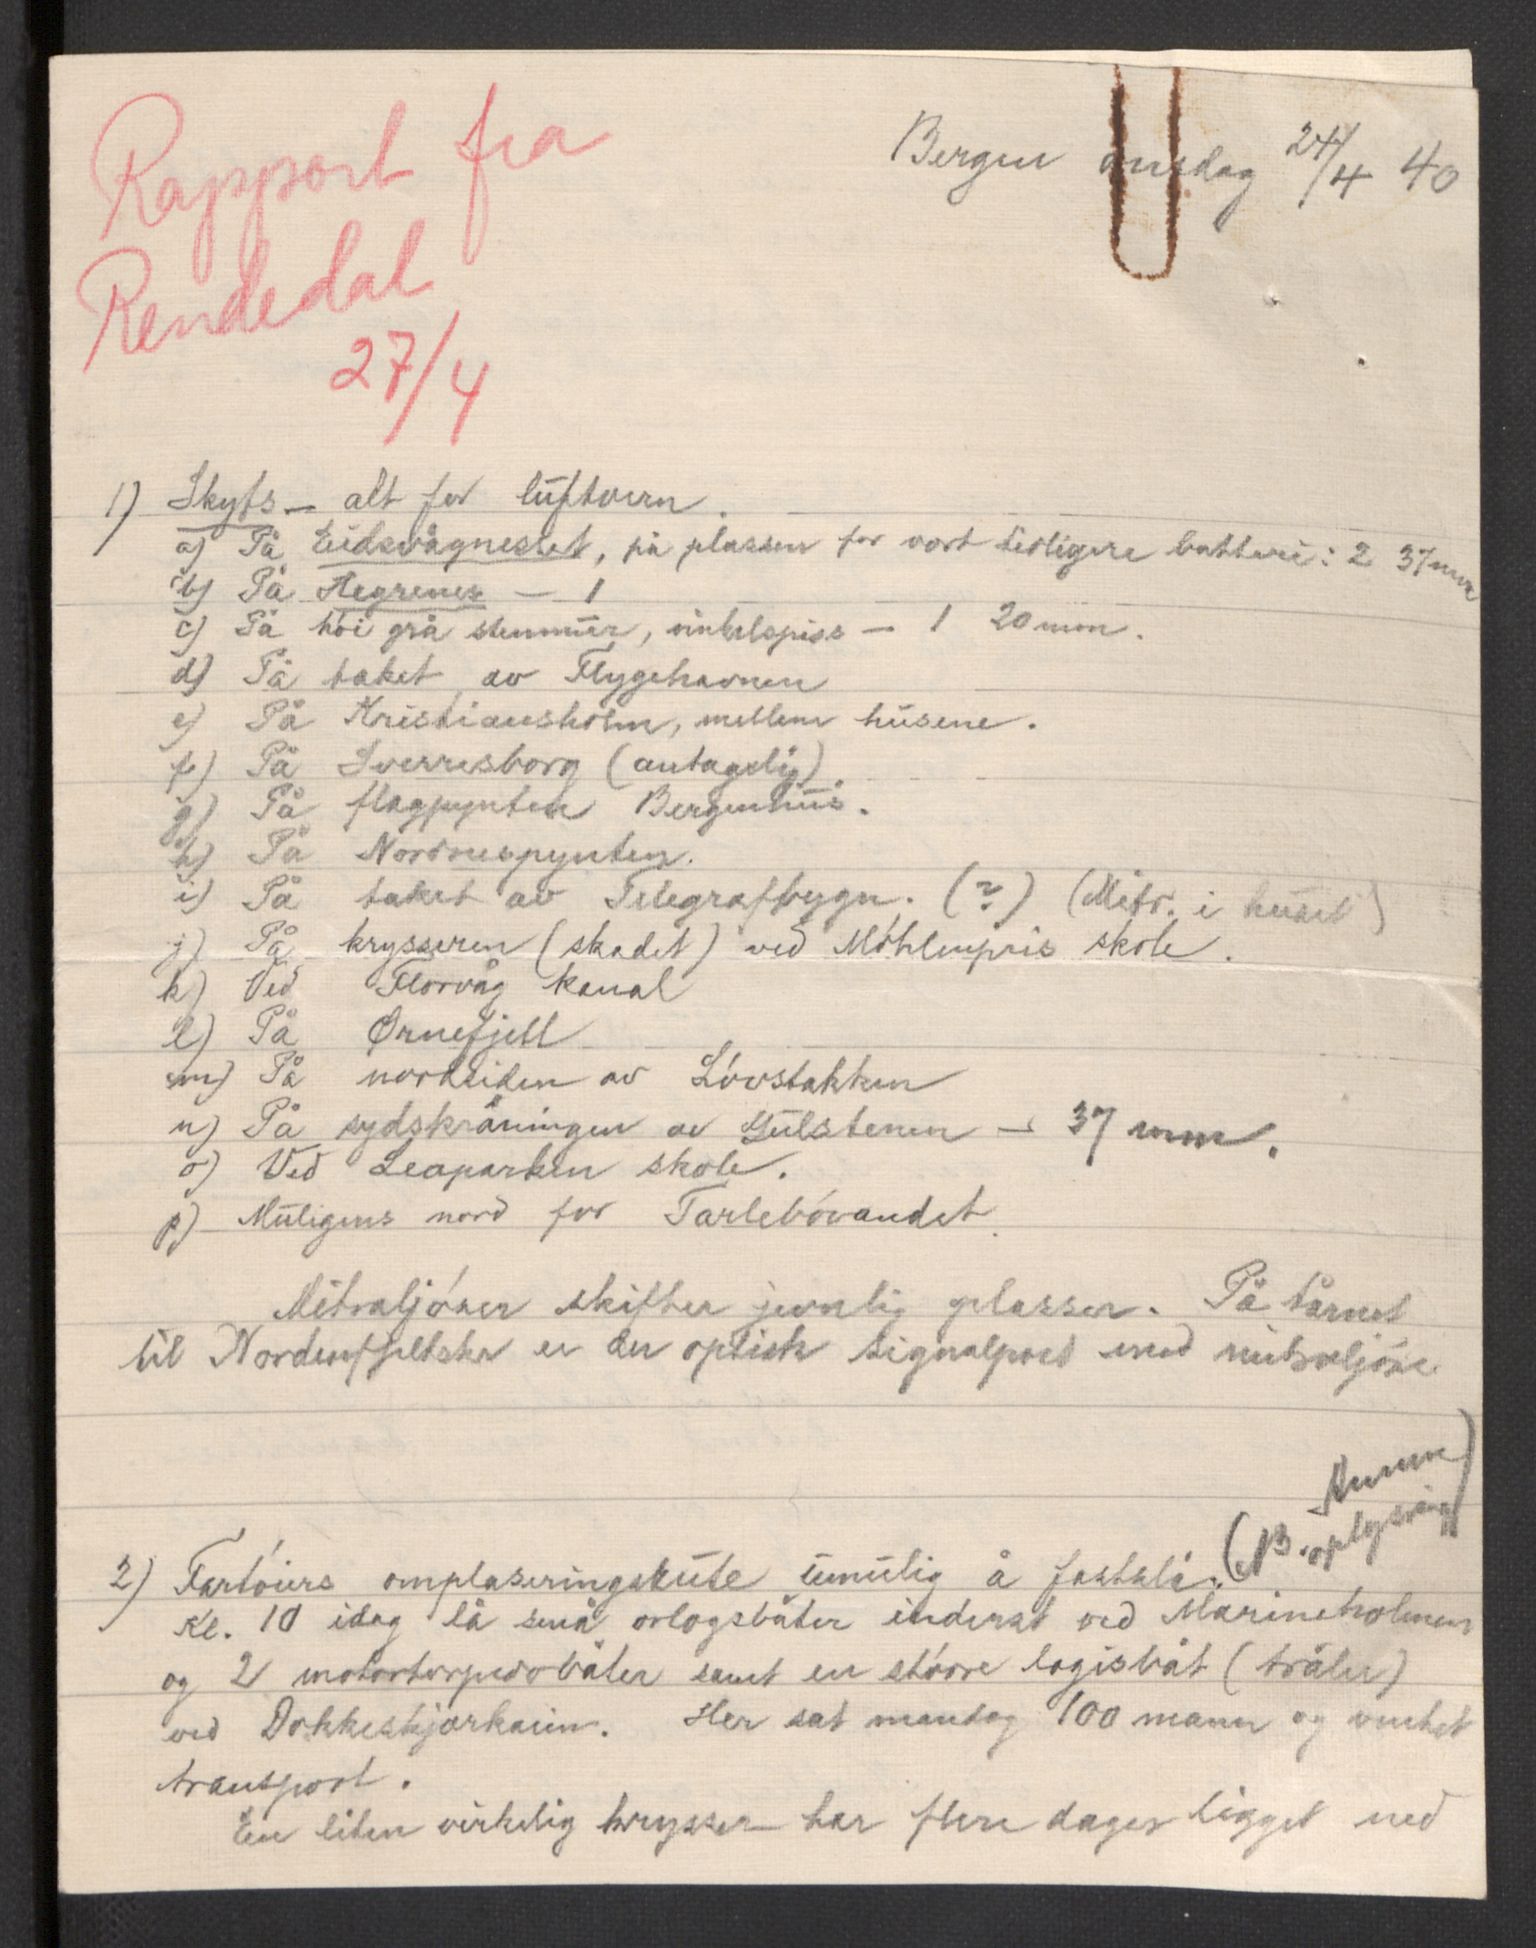 Rapport fra
Rendedal
27/4
Bergen onsdag 24/4 40
1) Skyts – alt for luftvern.
a) På Eidsvågnesset, på plassen for vort tidligere batteri: 2 37 mm
b) På Hegrenes – 1
c) På höi grå stenmur, vinkelspiss – 1 20 mm.
d) På taket av Flygehavnen
e) På Kristiansholm, mellem husene.
f) På Sverresborg (antagelig)
g) På flagpynten Bergenhus.
h) På Nordnespynten.
i) På taket av Telegrafbygn. (?) (Mitr. i huset)
j) På krysseren (skadet) ved Möhlenpris skole.
k) Ved Florvåg kanal
l) På Ørnefjell
m) På nordsiden av Lövstakken
n) På sydskråningen av Gulstenen – 37 mm.
o) Ved Leaparken skole.
p) Muligens nord for Tarlebövandet.
Mitraljöser skifter jevnlig plasser. På tårnet
til Nordenfjeldske er der optisk signalpost med mitraljöse
2) Fartöiers omplaseringsrute umulig å fastslå. (B. oplysning)
Kl. 10 idag lå små orlogsbåter inderst ved Marineholmen
og 2 motortorpedobåter samt en större logisbåt (tråler)
ved Dokkeskjærkaien. Her sat mandag 100 mann og ventet
transport.
En liten virkelig krysser har flere dager ligget ved